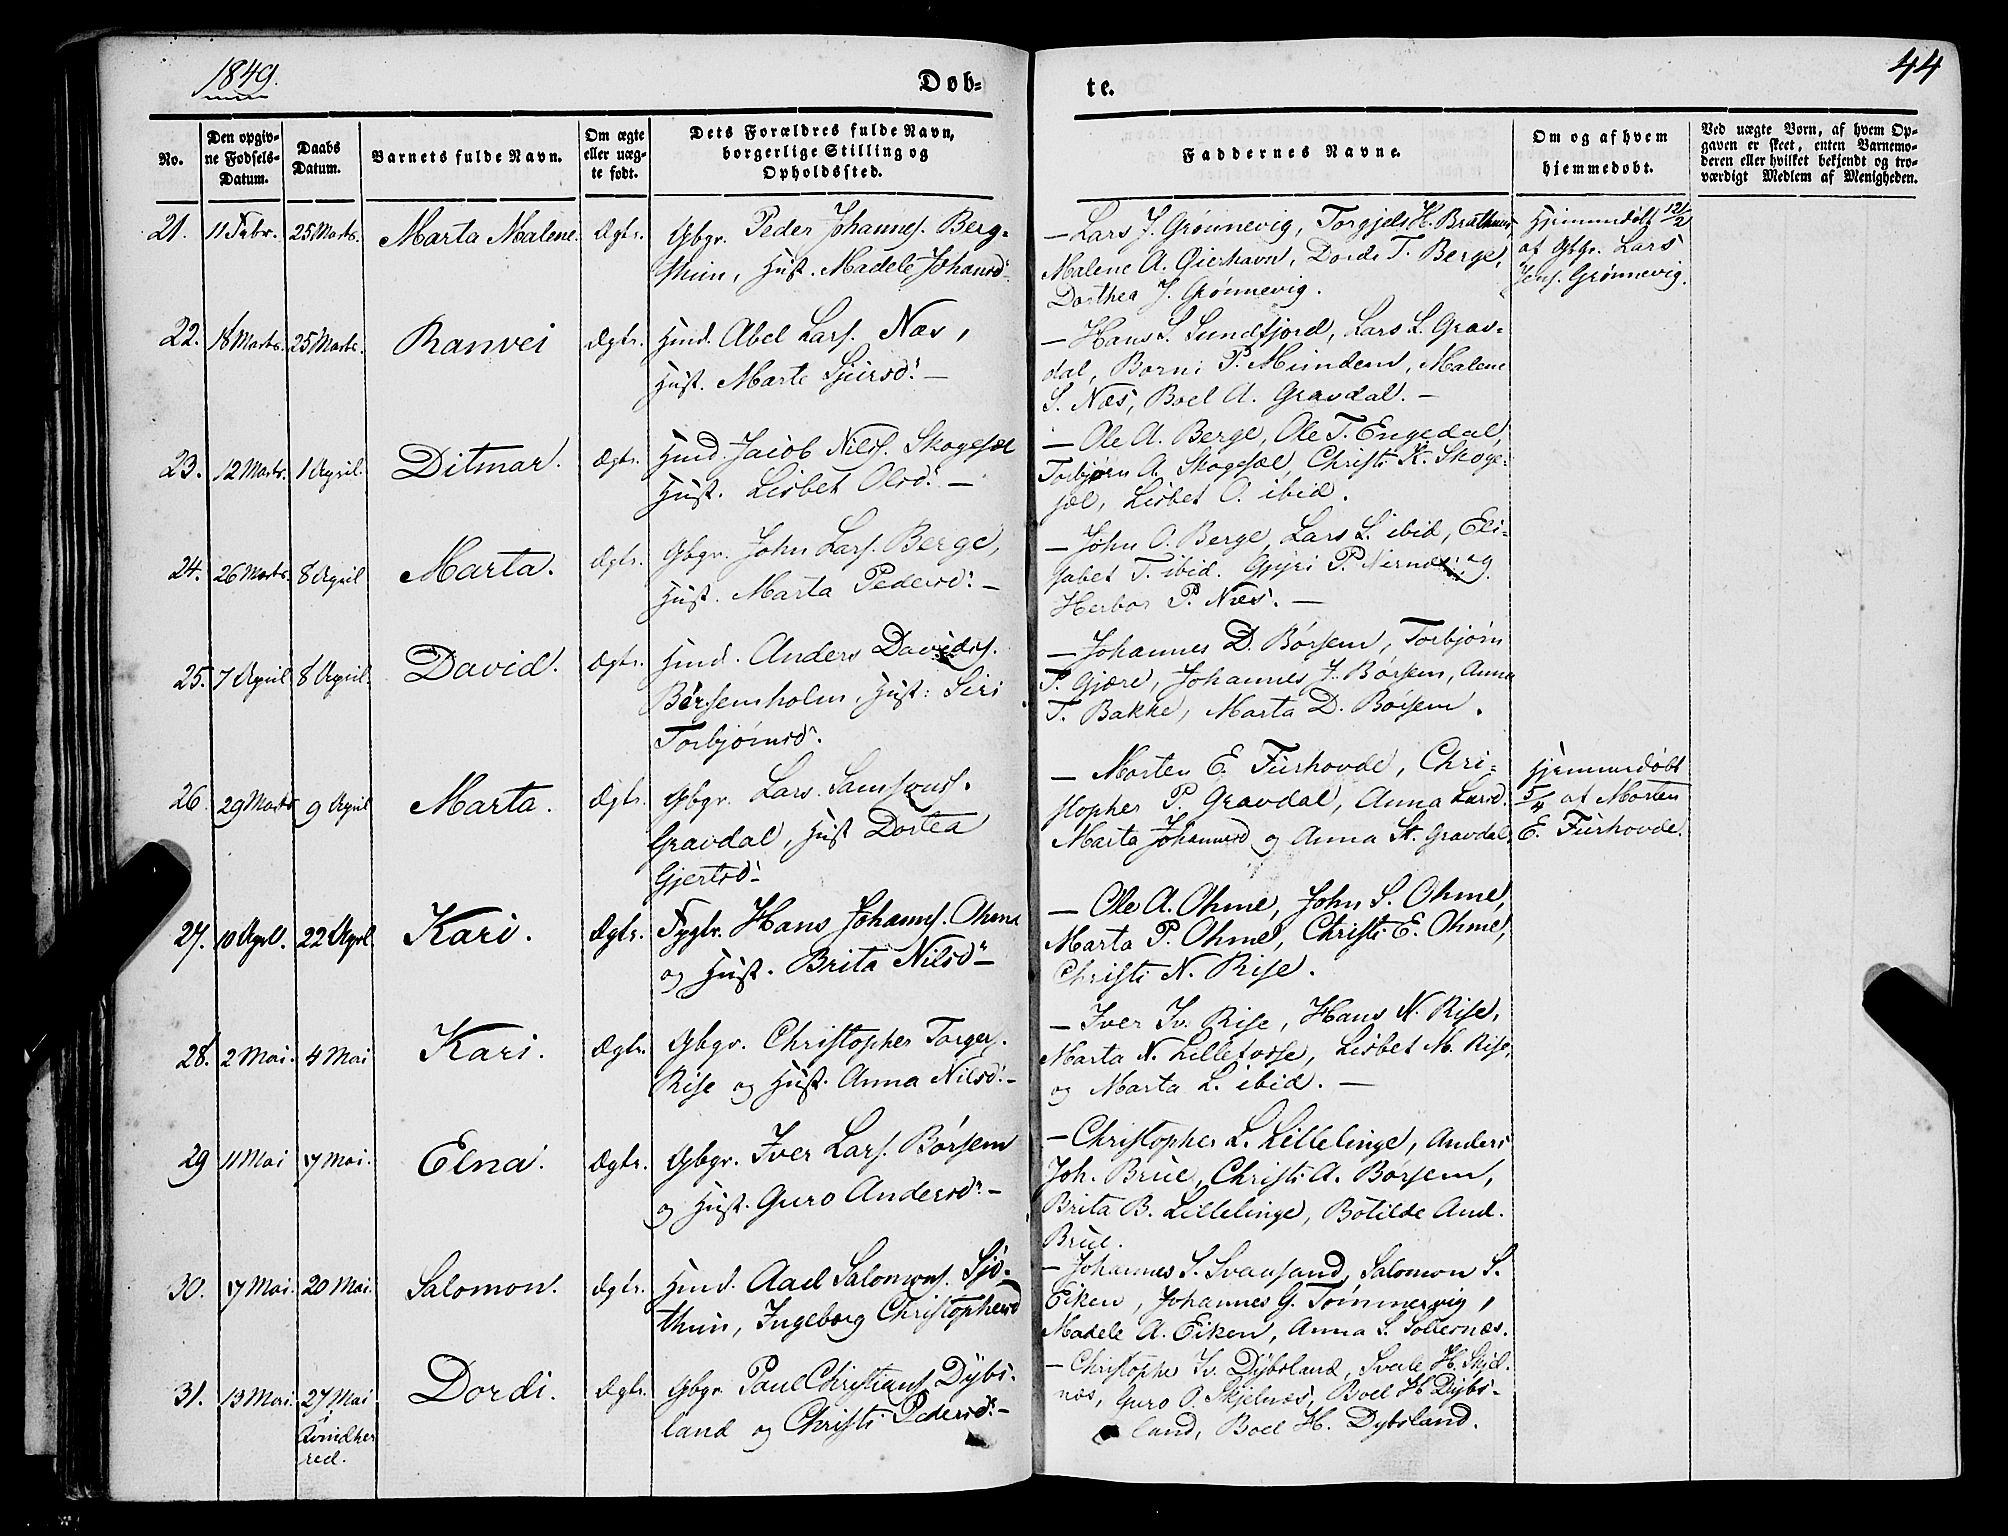 1849.
Døb-
te.
44
No.
Den opgiv-
ne Fødsels-
Datum.
Daabs
Datum.
Barnets fulde Navn.
Om ægte
eller uæg-
te født.
Dets Forældres fulde Navn,
borgerlige Stilling og
Opholdssted.
Faddernes Navne.
Om og af hvem
hjemmedøbt.
Ved uægte Børn, af hvem Op-
gaven er skeet, enten Barnemo-
deren eller hvilket bekjendt og tro-
værdigt Medlem af Menigheden.
21. 11 Febr. 25 Marts. Marta Malene. Ægte.
Gbgr. Peder Johannes. Berg-
thun, Hust. Madele Johansd:
— Lars J. Grønnevig, Torgjels H. Bruthun,
Malene A. Gierhavn, Dorde T. Berge,
Dorthea J. Grønnevig.
Hjemmedøbt 12/2
af Gbgr. Lars
Jens. Grønnevig.
22. 18 Marts. 25 Marts. Ranvei Ægte.
Hmd. Abel Lars. Næs,
Hust. Marte Sjursd: —
— Hans S. Sundfjord, Lars L. Grav-
dal, Borni P. Mundem, Malene
S. Næs, Boel A. Gravdal. —
23. 12 Marts. 1 April. Ditmar. Ægte.
Hmd. Jacob Nilss. Skogesæl
Hust. Lisbet Olsd: —
— Ole A. Berge, Ole T. Engedal,
Torbjørn A. Skogesæl, Christi K. Skoge-
sæl, Lisbet O. ibid.
24. 26 Marts. 8 April Marta. Ægte.
Gbgr. John Lars. Berge,
Hust. Marta Pedersd: —
— John O. Berge, Lars L. ibid, Eli-
sabet T. ibid. Gyri P. og
Herbor P. Næs. —
25. 7 April 8 April. David. Ægte.
Hmd. Anders Davids.
Børsemholm, Hust: Siri
Torbjørnsd:
— Johannes D. Børsem, Torbjørn
T. Gjære, Johannes J. Børsem, Anna
T. Bakke, Marta D. Børsem.
26. 29 Marts 9 April Marta. Ægte.
Gbgr. Lars Samsons.
Gravdal, Hust Dortea
Gjertsd:
— Morten E. Furhovde, Chri-
stopher P. Gravdal, Anna Larsd.
Marta Johannesd og Anna St. Gravdal.
Hjemmedøbt
5/4 af Morten
E. Furhovde.
27. 10 April. 22 April Kari. Ægte.
Hans Johannes. Ohme
og Hust. Brita Nilsd: —
— Ole A. Ohme, John S. Ohme,
Marta P. Ohme, Christi E. Ohme,
Christi N. Rise.
28. 2 Mai. 4 Mai Kari. Ægte.
Gbgr. Christopher Torgers.
Rise og Hust. Anna Nilsd: —
— Iver Iv. Rise, Hans N. Rise,
Marta N. Lilletosse, Lisbet M. Rise,
og Marta L. ibid. —
29 11 Mai 17 Mai. Elna. Ægte.
Gbgr. Iver Lars. Børsem
og Hust. Guro Andersd: —
— Christopher L. Lillelinge, Anders
Joh. Brue, Christi A. Børsem,
Brita B. Lillelinge, Botilde And.
Brue.
30. 17 Mai. 20 Mai. Salomon. Ægte.
Hmd. Aael Salomons. Sjø-
thun, Ingeborg Christophersd
— Johannes S. Svausand, Salomon S.
Eiken, Johannes G. Tømmervig,
Madele A. Eiken, Anna S. Solternæs.
31. 13 Mai. 27 Mai Dordi. Ægte.
i
Qvindher
red.
Gbgr. Paul Christians. Dybs-
land og Christi Pedersd: —
— Christopher Iv. Dybsland, Svale H. Skjel-
næs, Guro O. Skjelnæs, Boel H Dybs-
land, Boel H. Dybsland.